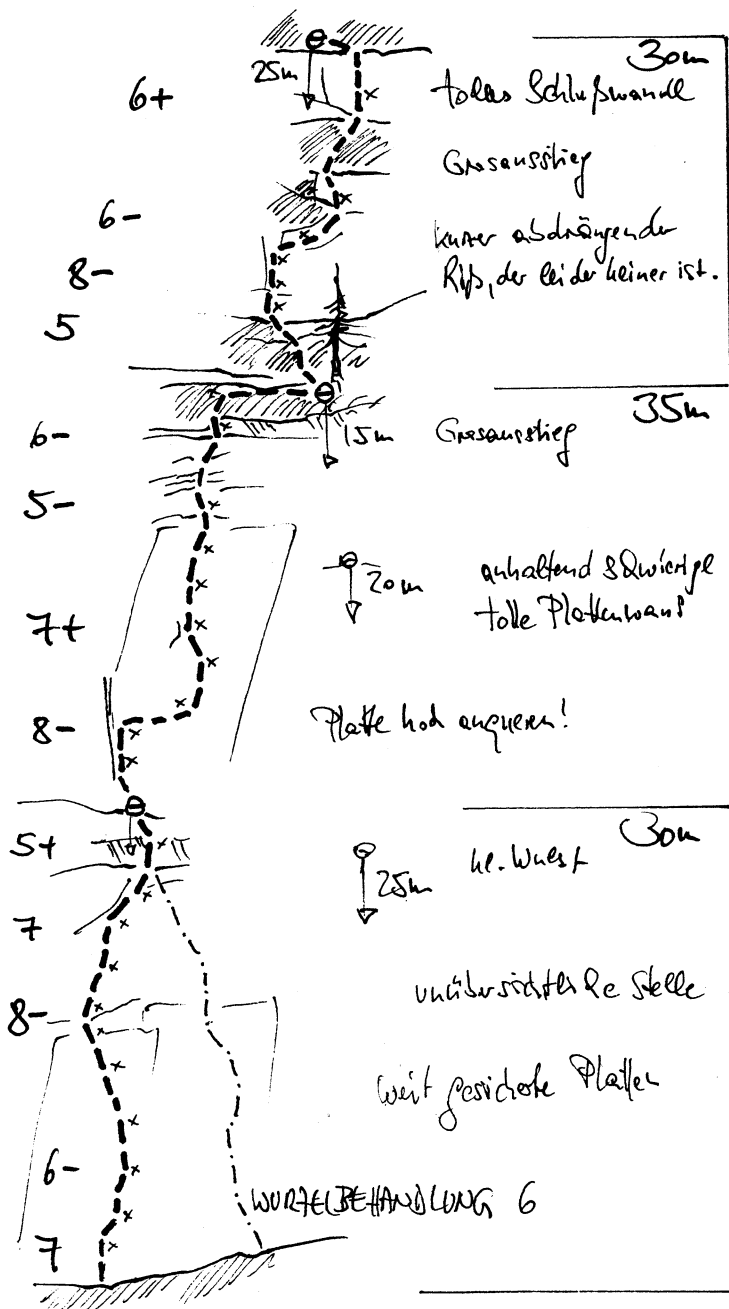 30m
25m
6+
tolles Schlußwandl
Grasausstieg
6-
kurzer abdrängender
8-
Riß, der leider keiner ist.
5
35m
6-
15m
Grasausstieg
5-
20m
anhaltend schwierige
tolle Plattenwand
7+
Platte hoch anqueren!
8-
30m
5+
25m
kl. Wulst
7
unübersichtliche Stelle
8-
weit gesicherte Platten
6-
WURZELBEHANDLUNG 6
7